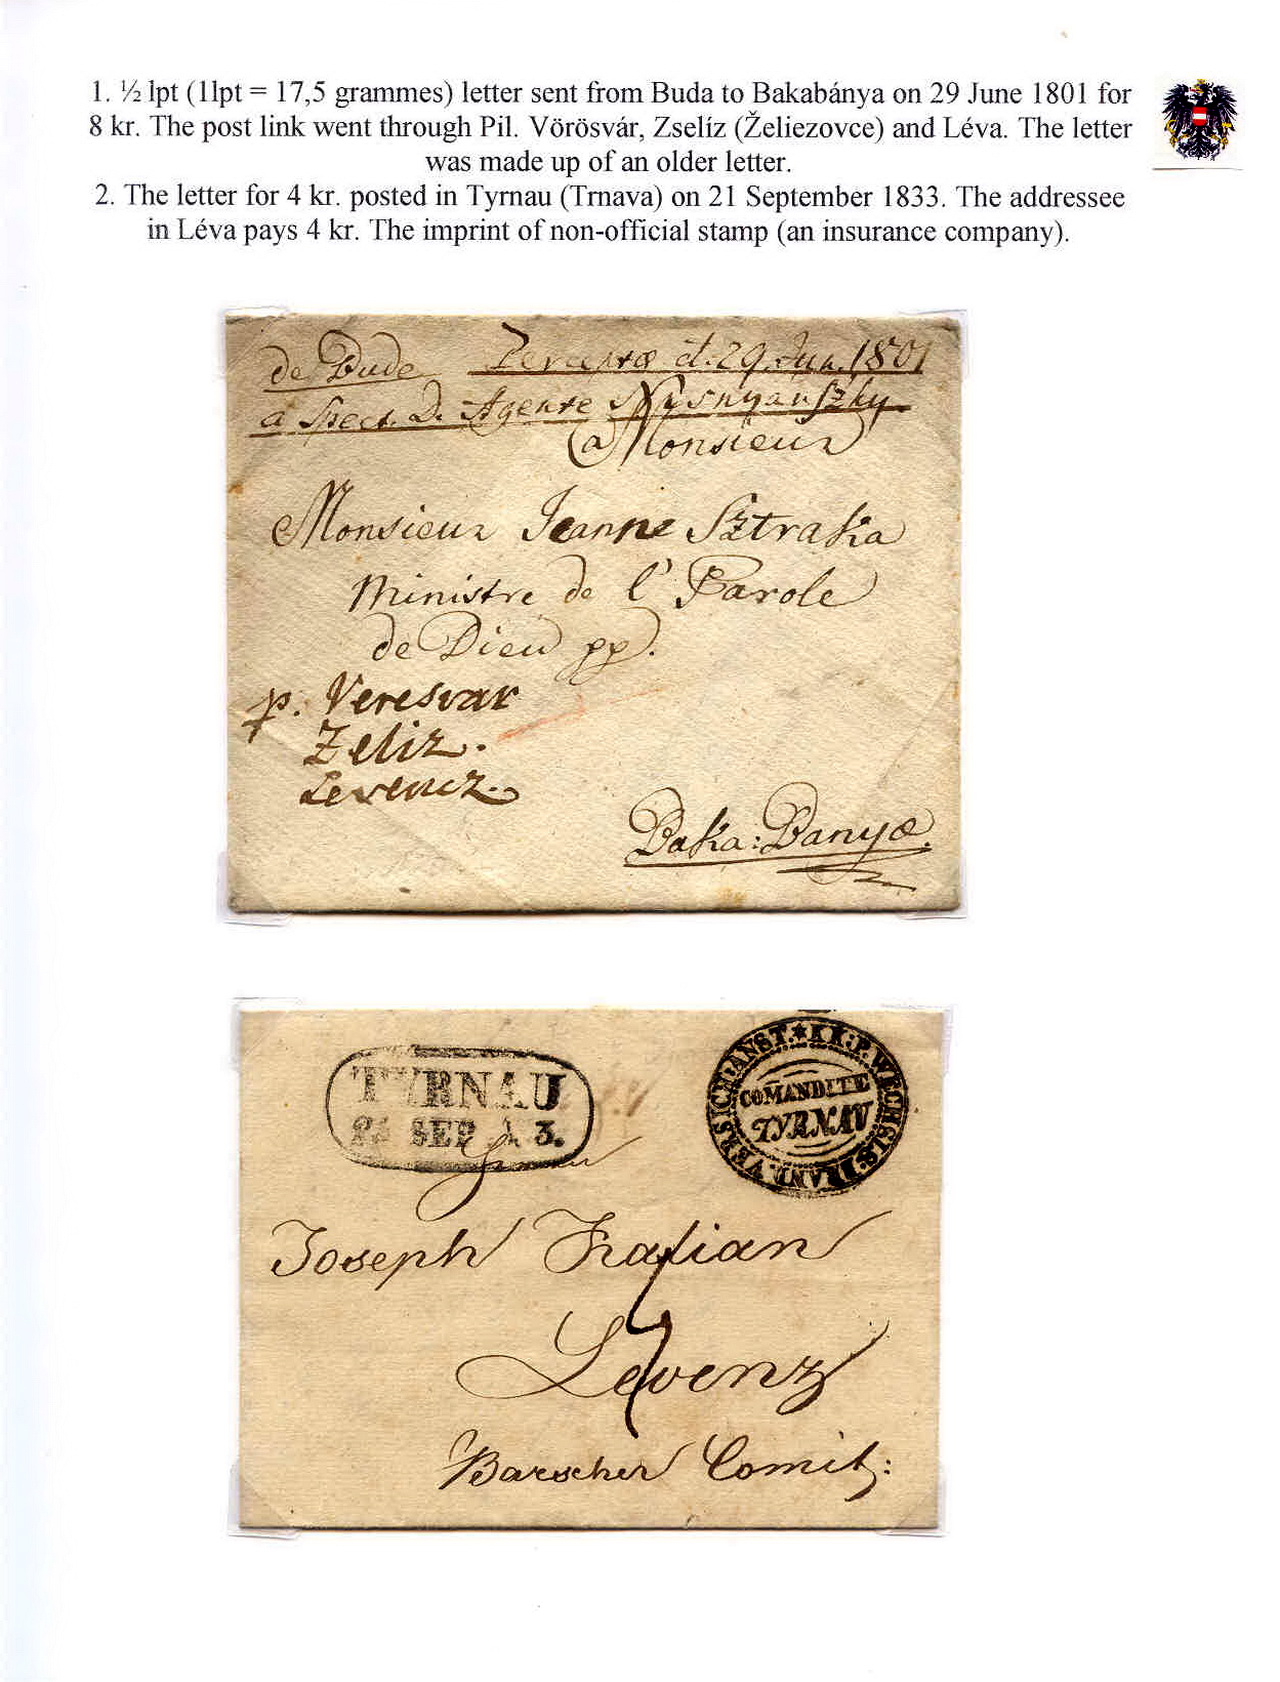 1. ½ lpt (1lpt = 17,5 grammes) letter sent from Buda to Bakabánya on 29 June 1801 for
8 kr. The post link went through Pil. Vörösvár, Zselíz (Želiezovce) and Léva. The letter
was made up of an older letter.
2. The letter for 4 kr. posted in Tyrnau (Trnava) on 21 September 1833. The addressee
in Léva pays 4 kr. The imprint of non-official stamp (an insurance company).
de Bude d. 29. Jun. 1801
a Spect. D. Agente
a Monsieur
Monsieur Jeanne Sztraka
Ministre de l' Parole
de Dieu pp.
p. Veresvar
Zeliz.
Levencz.
Baka: Banya.
TYRNAU
SEP 3.
KK: P. WECHSLS: BRAND. VERSICH: ANST. *
COMANDITE
TYRNAU
Joseph
4
Levenz
Barscher Comit: